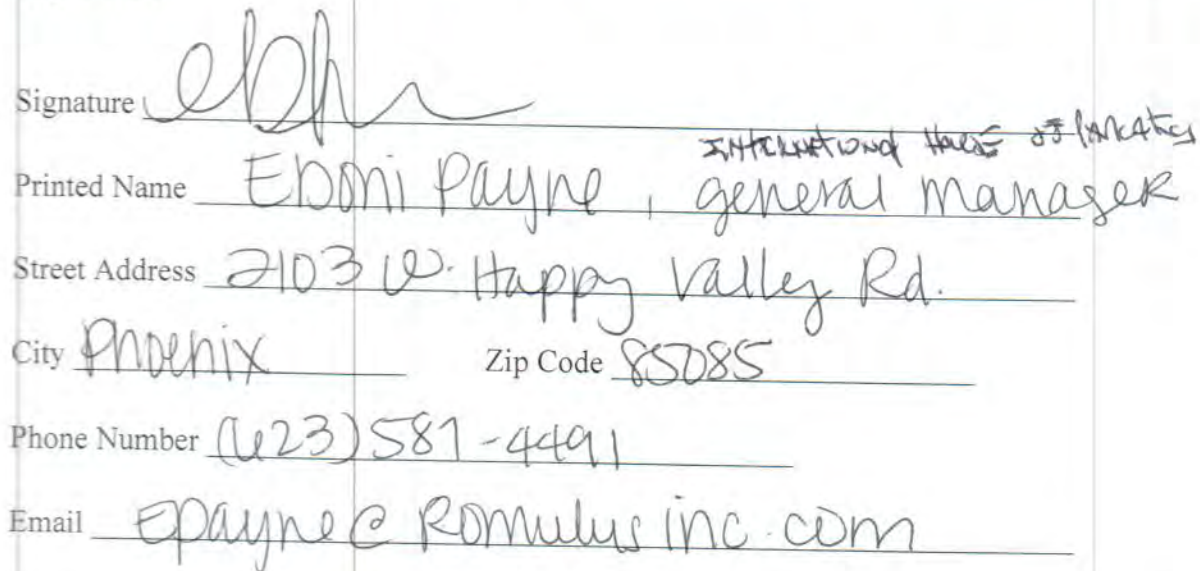 Signature
INTERNATIONAL HOUSE OF PANCAKES
Printed Name Eboni Payne, general manager
Street Address 2103 W. Happy Valley Rd.
City Phoenix Zip Code 85085
Phone Number (623) 587-4491
Email Epayne@Romulusinc.com